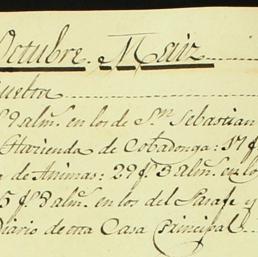 Octubre. Maiz
quebra
8 alm.s en los de S.n Sebastian
Hazienda de Cobadonga: 17 f
de Animas: 29 f.s 5 alm.s en lo
5 f.s 3 alm.s en los del Parafe y
Diario de otra Casa principal